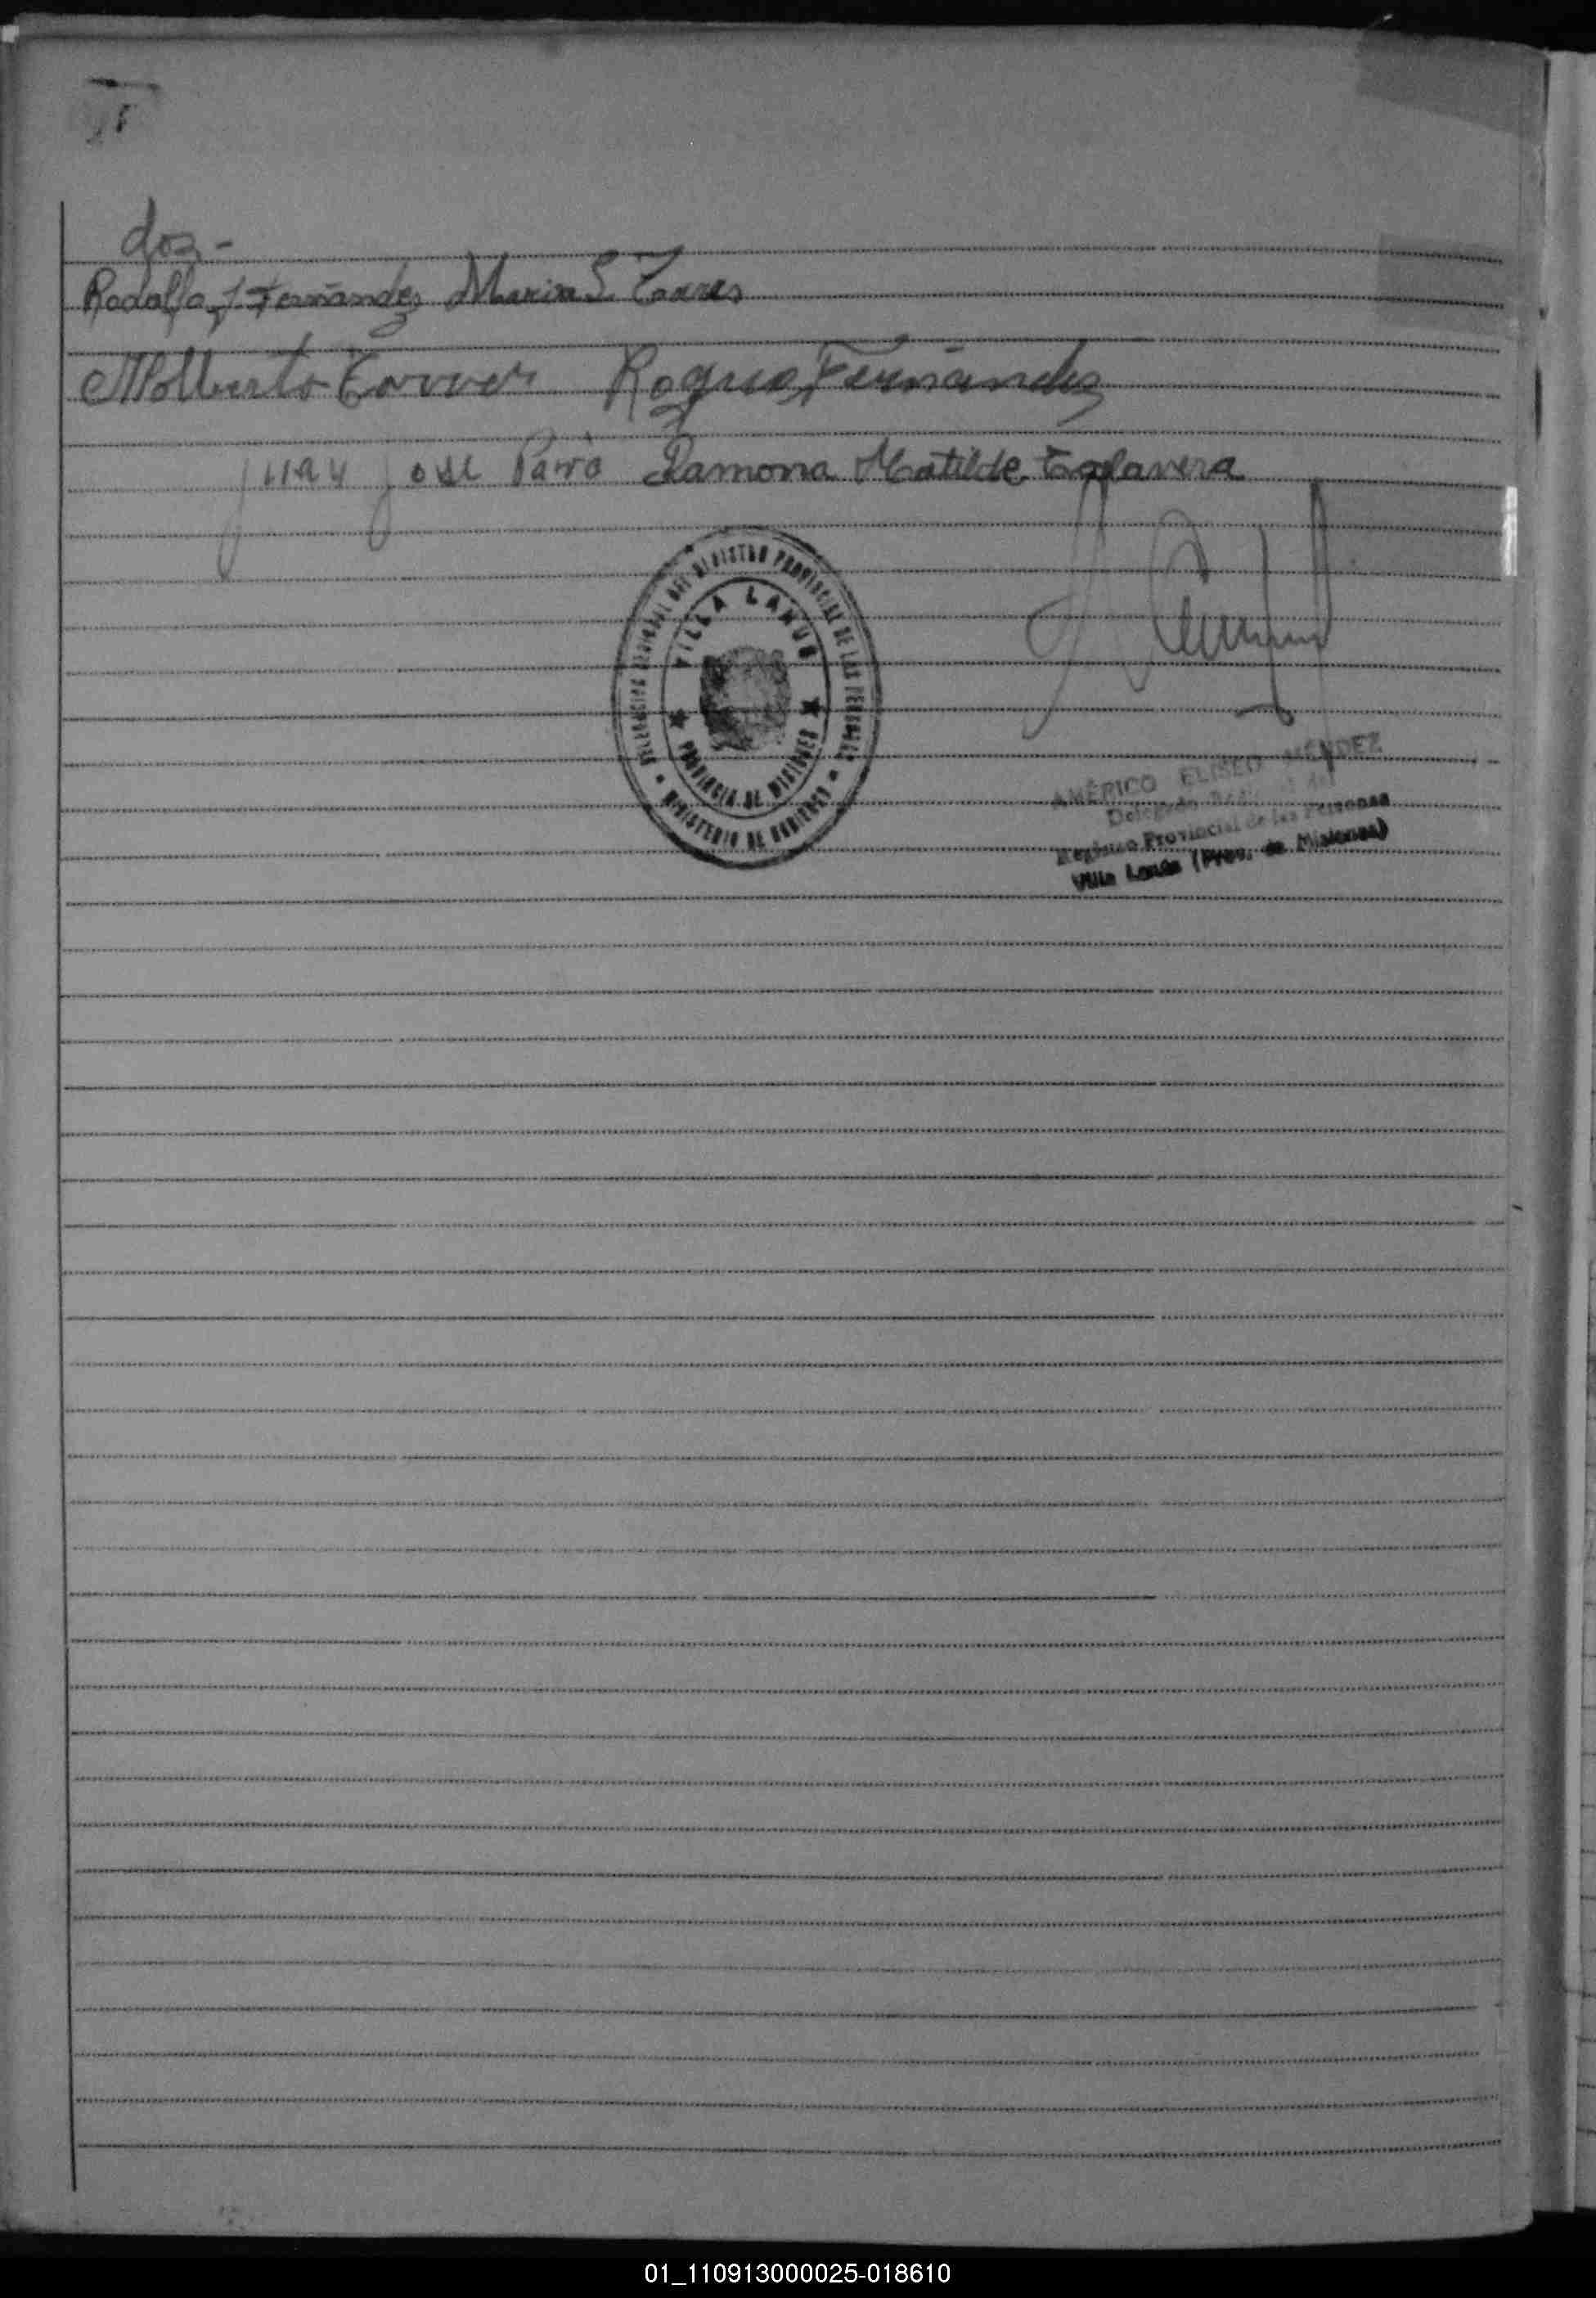 dos-
Rodolfo J Fernández Maria S. Torres
Torres Roque Fernández
Juan José Ramona Matilde Talavera
DELEGACION REGIONAL DEL REGISTRO PROVINCIAL DE LAS PERSONAS
VILLA LANUS
PROVINCIA DE MISIONES
MINISTERIO DE GOBIERNO
AMÉRICO ELISEO MÉNDEZ
Delegado del
Registro Provincial de las Personas
Villa Lanús (Prov. de Misiones)
01_110913000025-018610